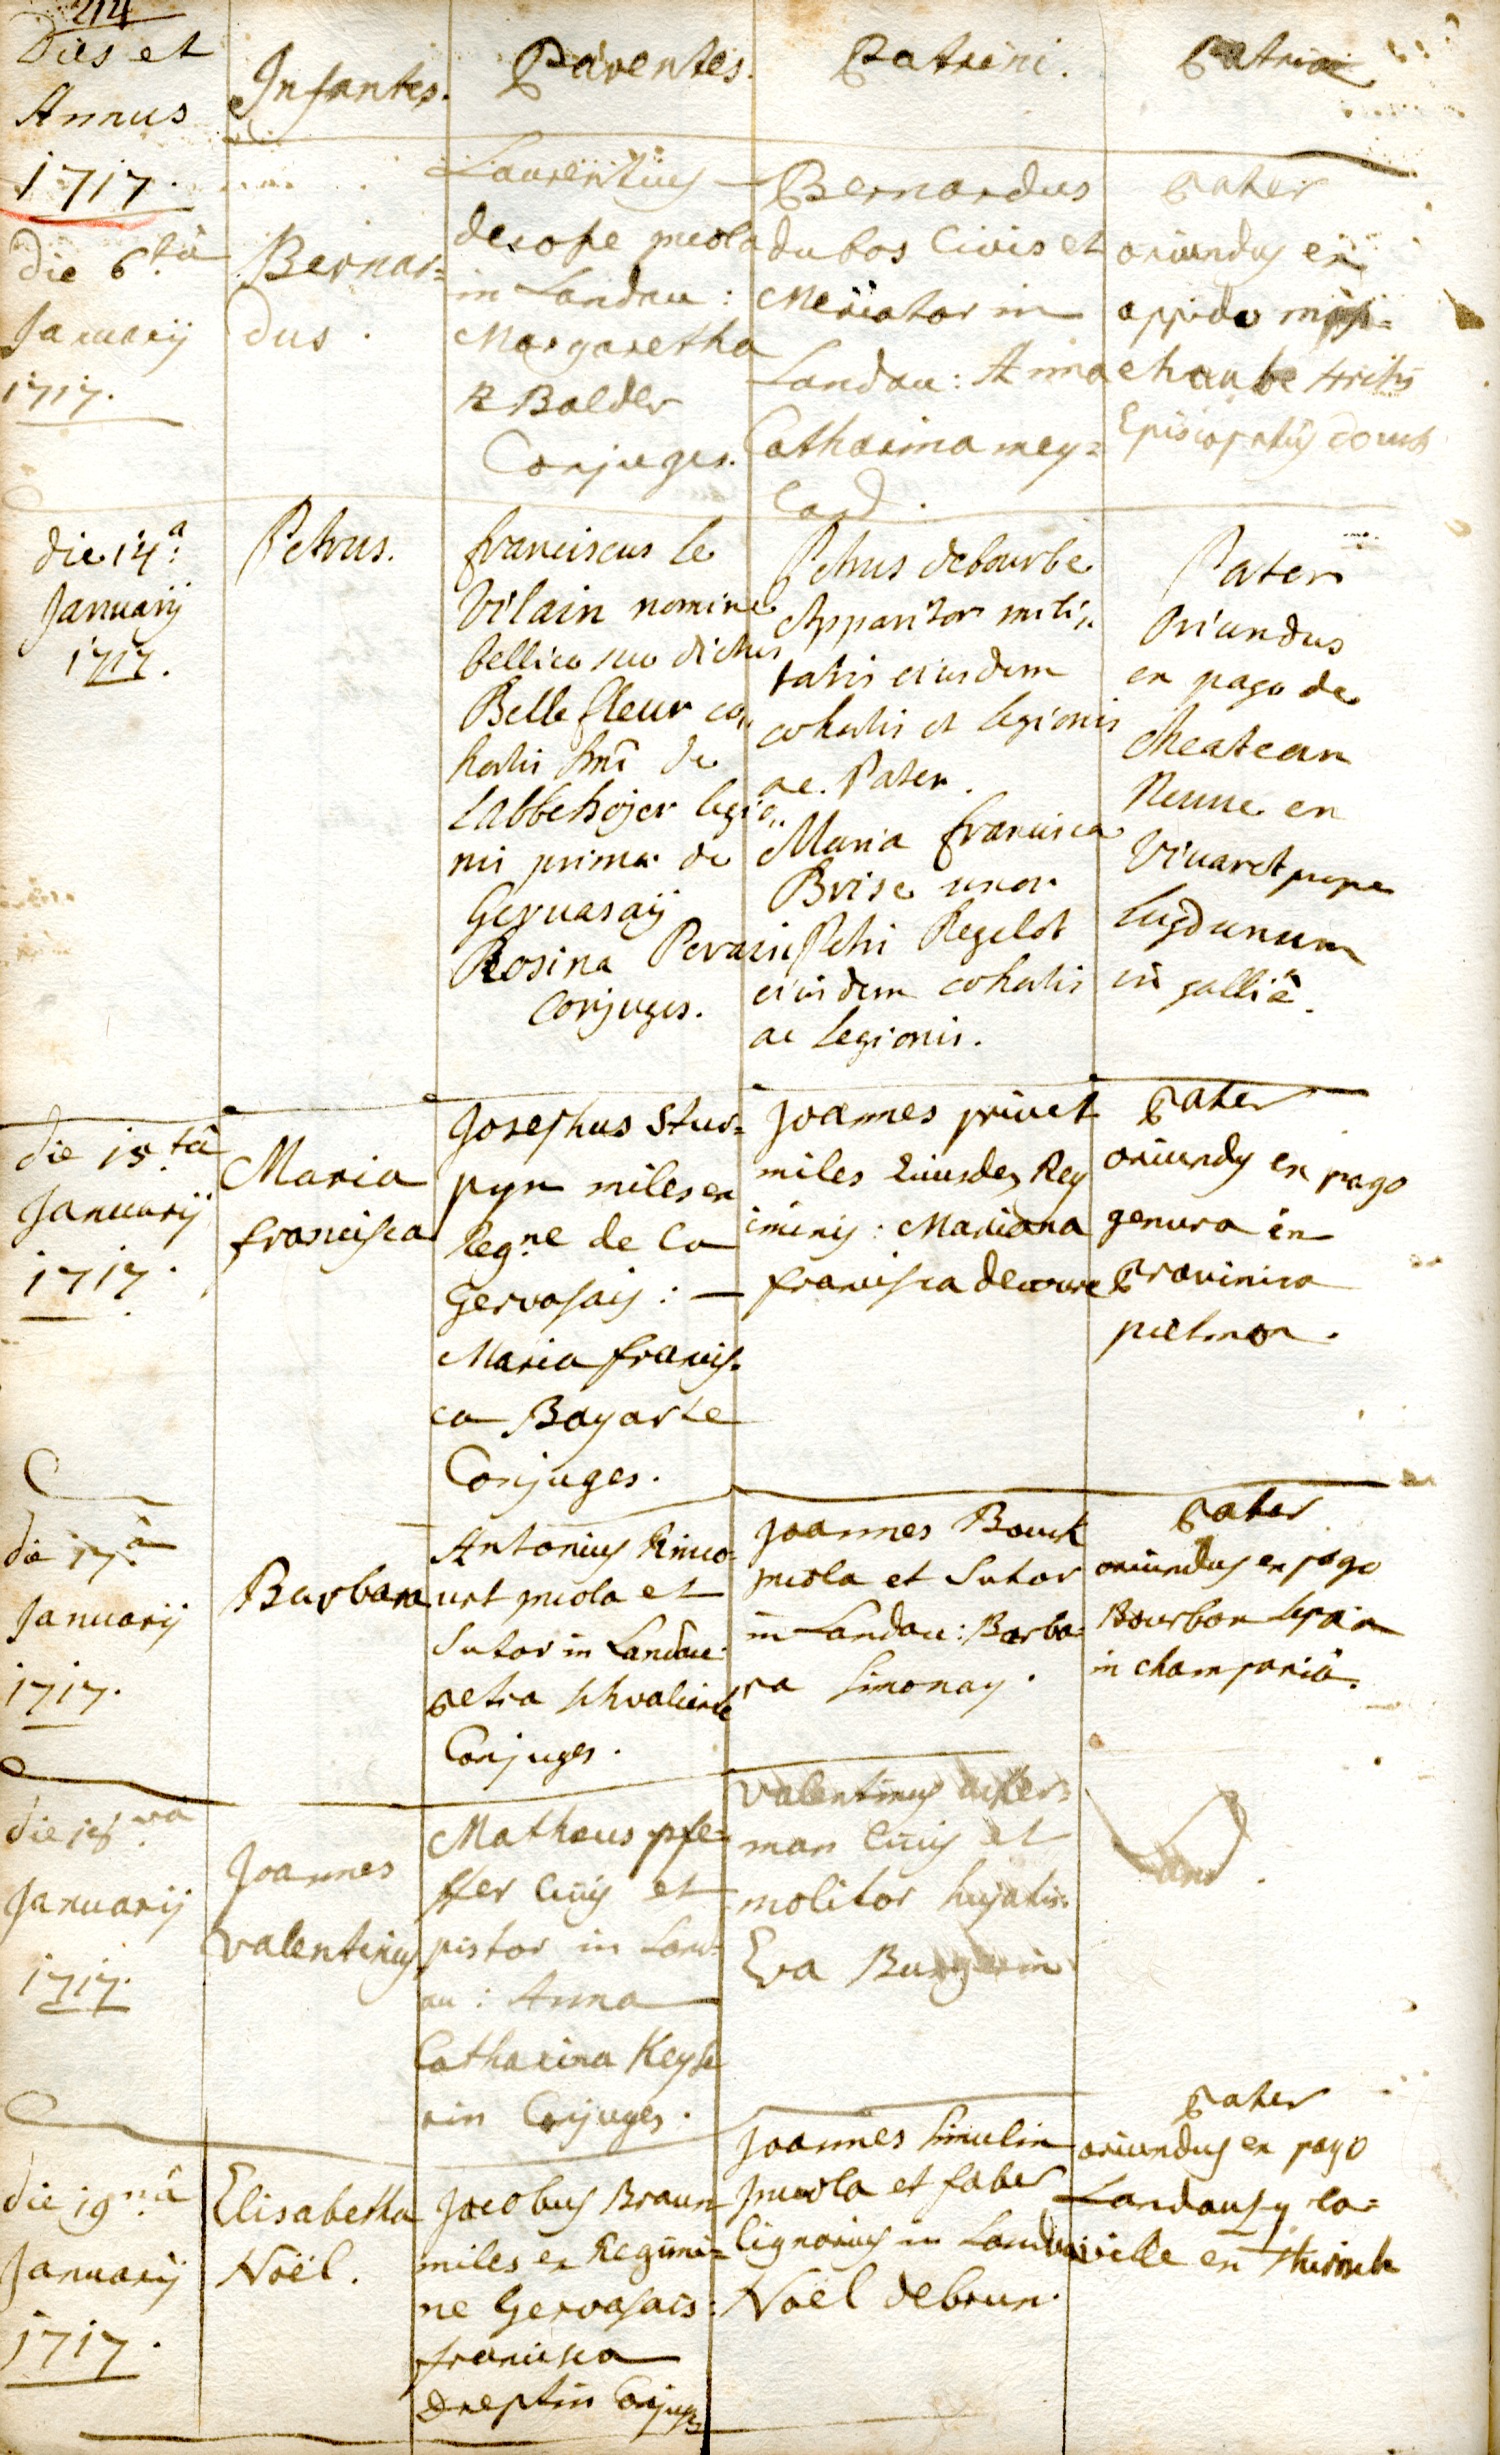 214
Dies et
Annus
Infantes.
Parentes.
Patrini.
1717.
die 6.tâ
Januarij
1717.
Bernar=
dus.
Laurentius
desope incola
in Landau:
Margaretha
Balder
Conjuges.
Bernardus
dubos Civis et
Mercator in
Landau: Anna
Catharina mey=
Pater
oriundus ex
oppido
Episcopatus
die 14.a
Januarij
1717.
Petrus.
franciscus le
Vilain nomine
bellico suo dictus
Belle fleur co„
hortis Dni de
legio„
nis primae de
Gervasaij
Rosina
Conjuges.
Petrus debourbe
Apparitor mili„
taris eiusdem
cohortis et legionis
ac Pater.
Maria francisca
Brise uxor
Petri Regelot
eiusdem cohortis
ac legionis.
Pater
Oriundus
ex pago de
Neuue en
Vivaret prope
Lugdunum
in galliâ.
die 15.tâ
Januarij
1717.
Maria
francisca
Josephus Stur=
pyn miles ex
Reg.ne de la
Gervasais:
Maria francis=
ca Bayarte
Conjuges.
Joannes privet
miles Eiusdem Reg
iminis: Mariana
francisca
Pater
oriundus ex pago
genura in
Provincia
pietmon.
die 17.â
Januarij
1717.
Barbara
Antonius Rinco=
urt incola et
Sutor in Landau:
Petra
Conjuges.
Joannes Bouck
incola et Sutor
in Landau: Barba=
ra Simonay.
Pater
oriundus ex pago
Bourbon
in champaniâ.
die 18.va
Januarij
1717.
Joannes
Valentinus
Matheus pfe=
ffer Civis et
pistor in Land=
au: Anna
Catharina Keyse
rin Conjuges.
Valentinus acker=
man Civis et
molitor hujatis:
Eva
die 19.nâ
Januarij
1717.
Elisabetha
Noël.
Jacobus Braun
miles ex Regimi=
ne Gervasais:
francisca
Conjuges
Joannes Simulin
incola et faber
lignarius in Landau
Noël debrun.
Pater
oriundus ex pago